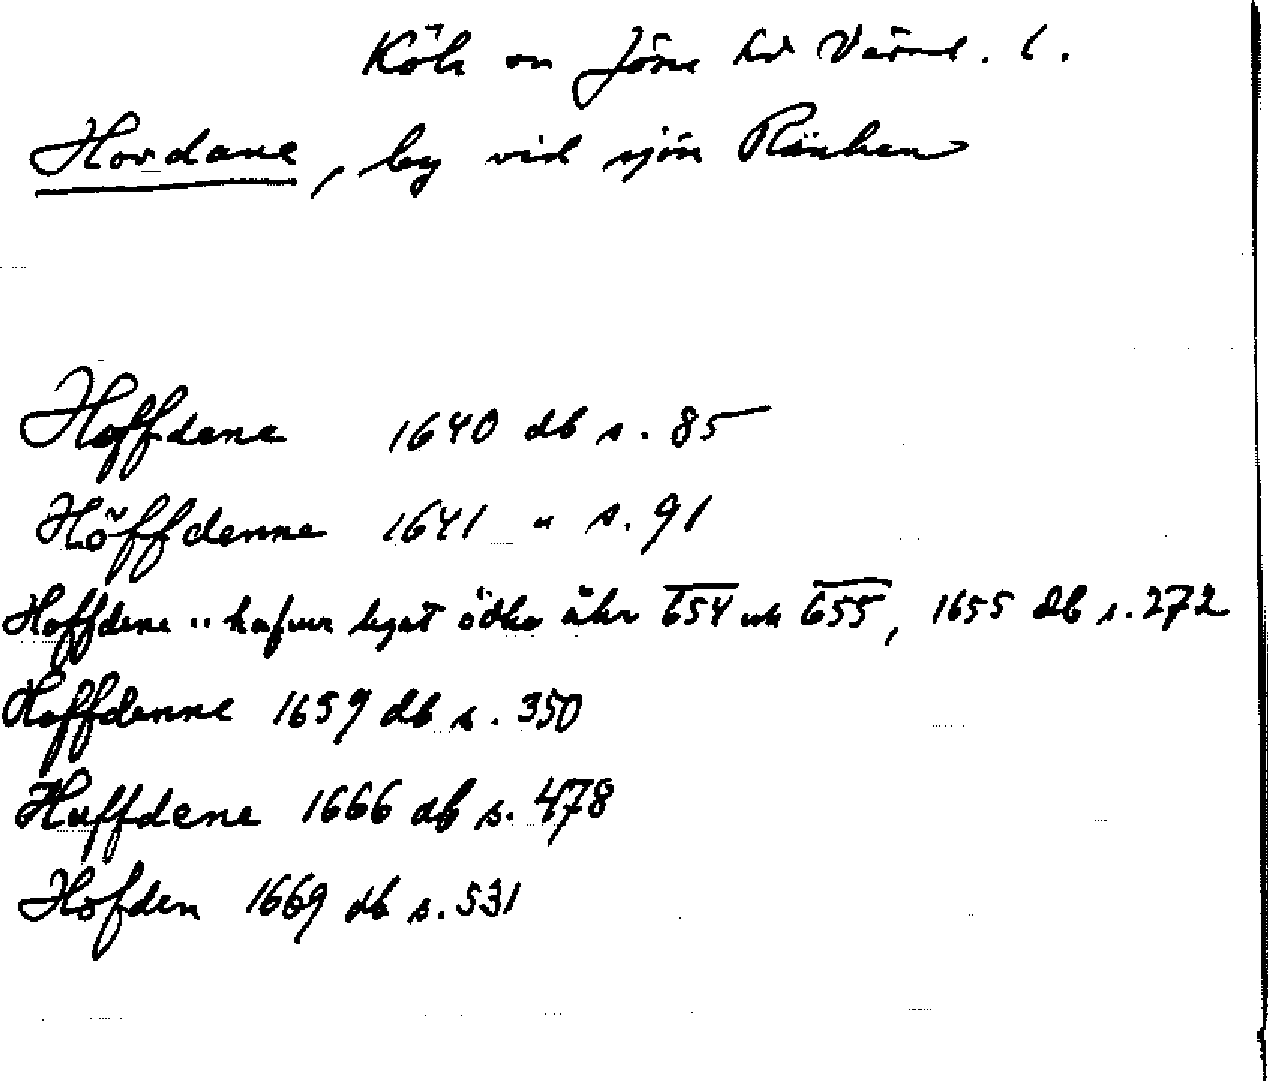 Köla sn Jösse hd Värml. l.
Hordane, by vid sjön Ränken
Hoffdene 1640 db s. 85
Höffdenne 1641 " s. 91
Hoffdene .. hafuer legat ödhe åhr 654 och 655, 1655 db s. 272
Hoffdenne 1659 db s. 350
Huffdene 1666 db s. 478
Hofden 1669 db s. 531